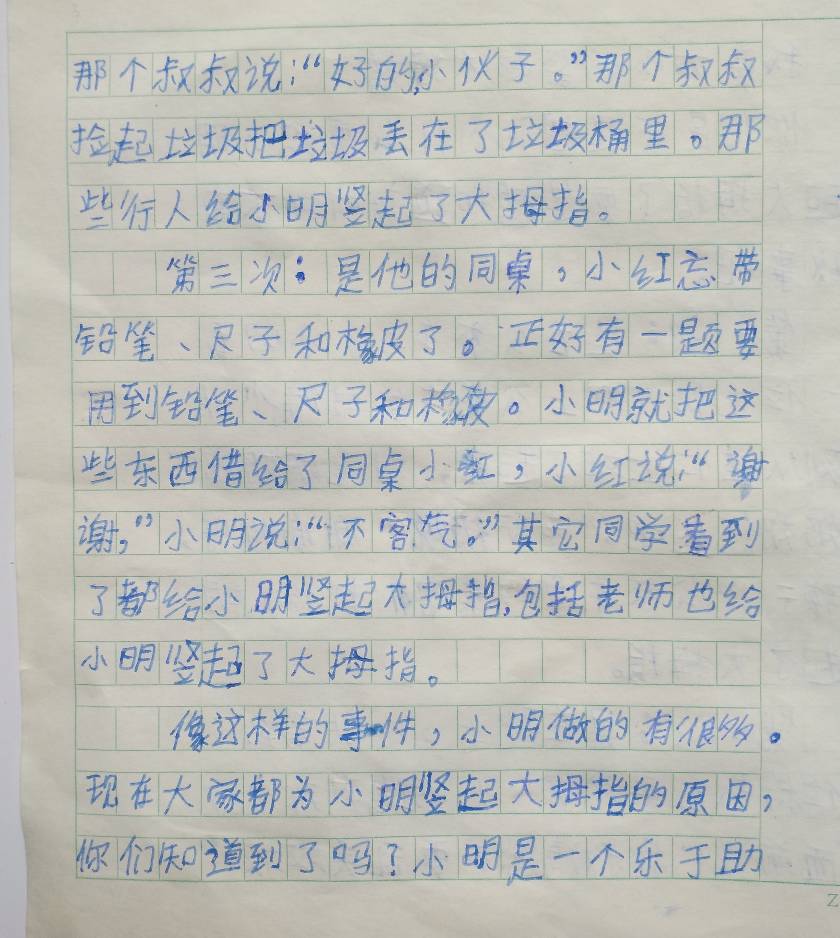 那个叔叔说：“好的，小伙子。”那个叔叔
捡起垃圾把垃圾丢在了垃圾桶里。那
些行人给小明竖起了大拇指。
第三次：是他的同桌，小红忘带
铅笔、尺子和橡皮了。正好有一题要
用到铅笔、尺子和橡皮。小明就把这
些东西借给了同桌小红，小红说：“谢
谢，”小明说：“不客气。”其它同学看到
了都给小明竖起大拇指，包括老师也给
小明竖起了大拇指。
像这样的事件，小明做的有很多。
现在大家都为小明竖起大拇指的原因，
你们知道到了吗？小明是一个乐于助